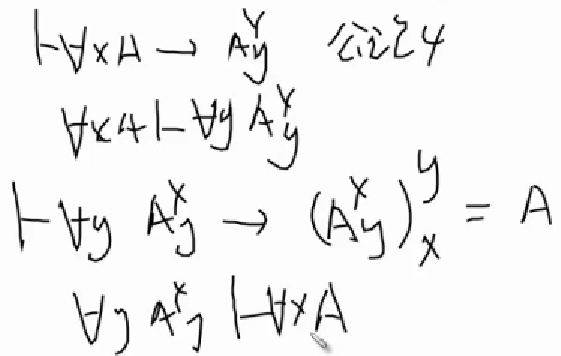 ⊢∀xA → A^x_y 公理4
∀xA ⊢ ∀y A^x_y
⊢∀y A^x_y → (A^x_y)^y_x = A
∀y A^x_y ⊢ ∀xA